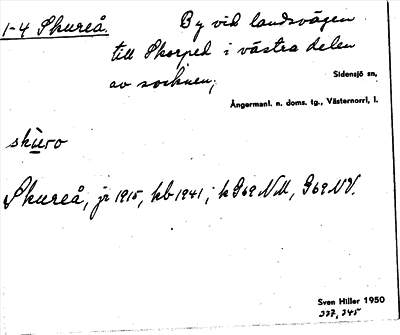 1-4 Skureå. By vid landsvägen
till Skorped i västra delen
av socknen;
Sidensjö sn,
Ångermanl. n. doms. tg., Västernorrl. l.
skuro
Skureå, jr 1915, kb 1941; k G69 NV.
Sven Hiller 1950
337, 345